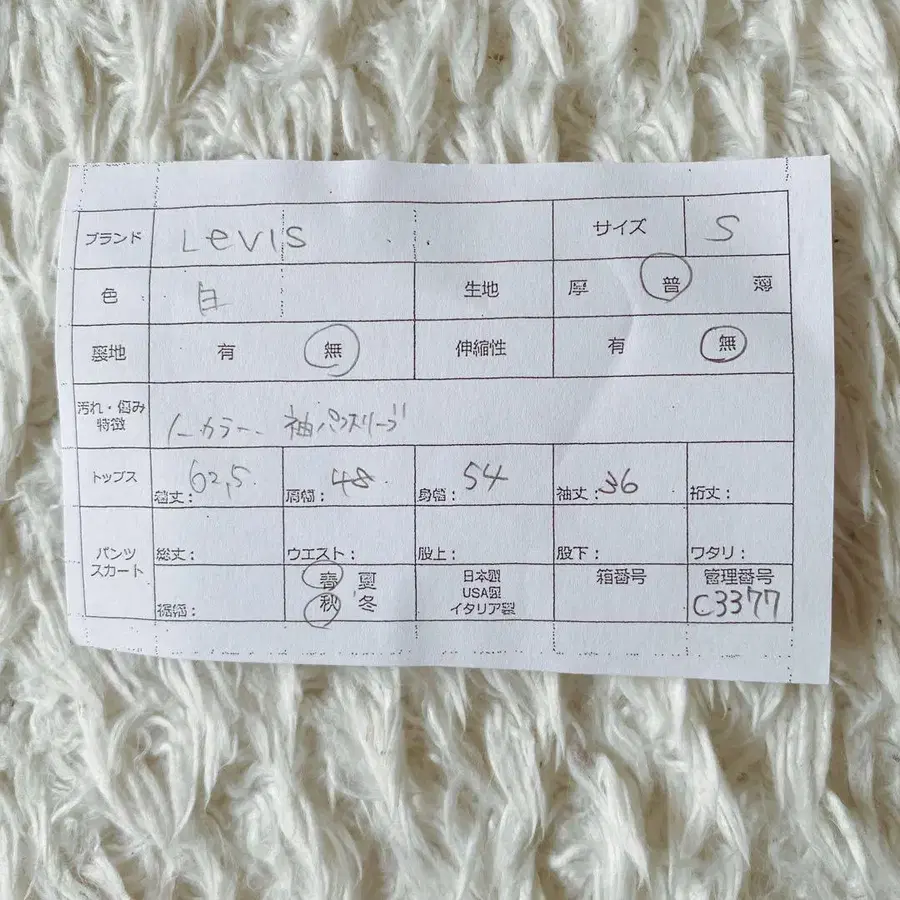 ブランド LEVIS サイズ S
色 白 生地 厚 普 薄
裏地 有 無 伸縮性 有 無
汚れ・傷み
特徴
ノーカラー、袖パフスリーブ
トップス 着丈: 62,5 肩幅: 48 身幅: 54 袖丈: 36 裄丈:
パンツ
スカート
総丈: ウエスト: 股上: 股下: ワタリ:
裾幅:
春 夏
秋 冬
日本製
USA製
イタリア製
箱番号
管理番号
C3377